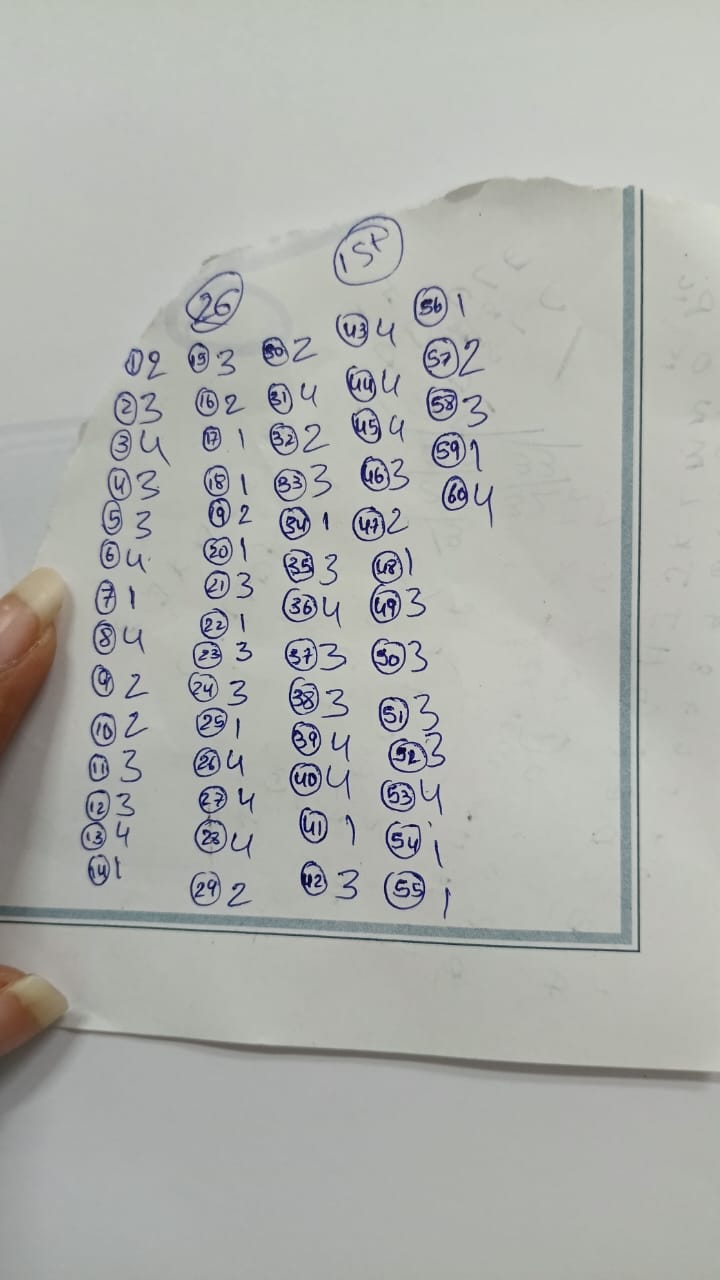 26
1st
① 2
② 3
③ 4
④ 3
⑤ 3
⑥ 4
⑦ 1
⑧ 4
⑨ 2
⑩ 2
⑪ 3
⑫ 3
⑬ 4
⑭ 1
⑮ 3
⑯ 2
⑰ 1
⑱ 1
⑲ 2
⑳ 1
㉑ 3
㉒ 1
㉓ 3
㉔ 3
㉕ 1
㉖ 4
㉗ 4
㉘ 4
㉙ 2
㉚ 2
㉛ 4
㉜ 2
㉝ 3
㉞ 1
㉟ 3
㊱ 4
㊲ 3
㊳ 3
㊴ 4
㊵ 4
㊶ 1
㊷ 3
㊸ 4
㊹ 4
㊺ 4
㊻ 3
㊼ 2
㊽ 1
㊾ 3
㊿ 3
51 3
52 3
53 4
54 1
55 1
56 1
57 2
58 3
59 1
60 4